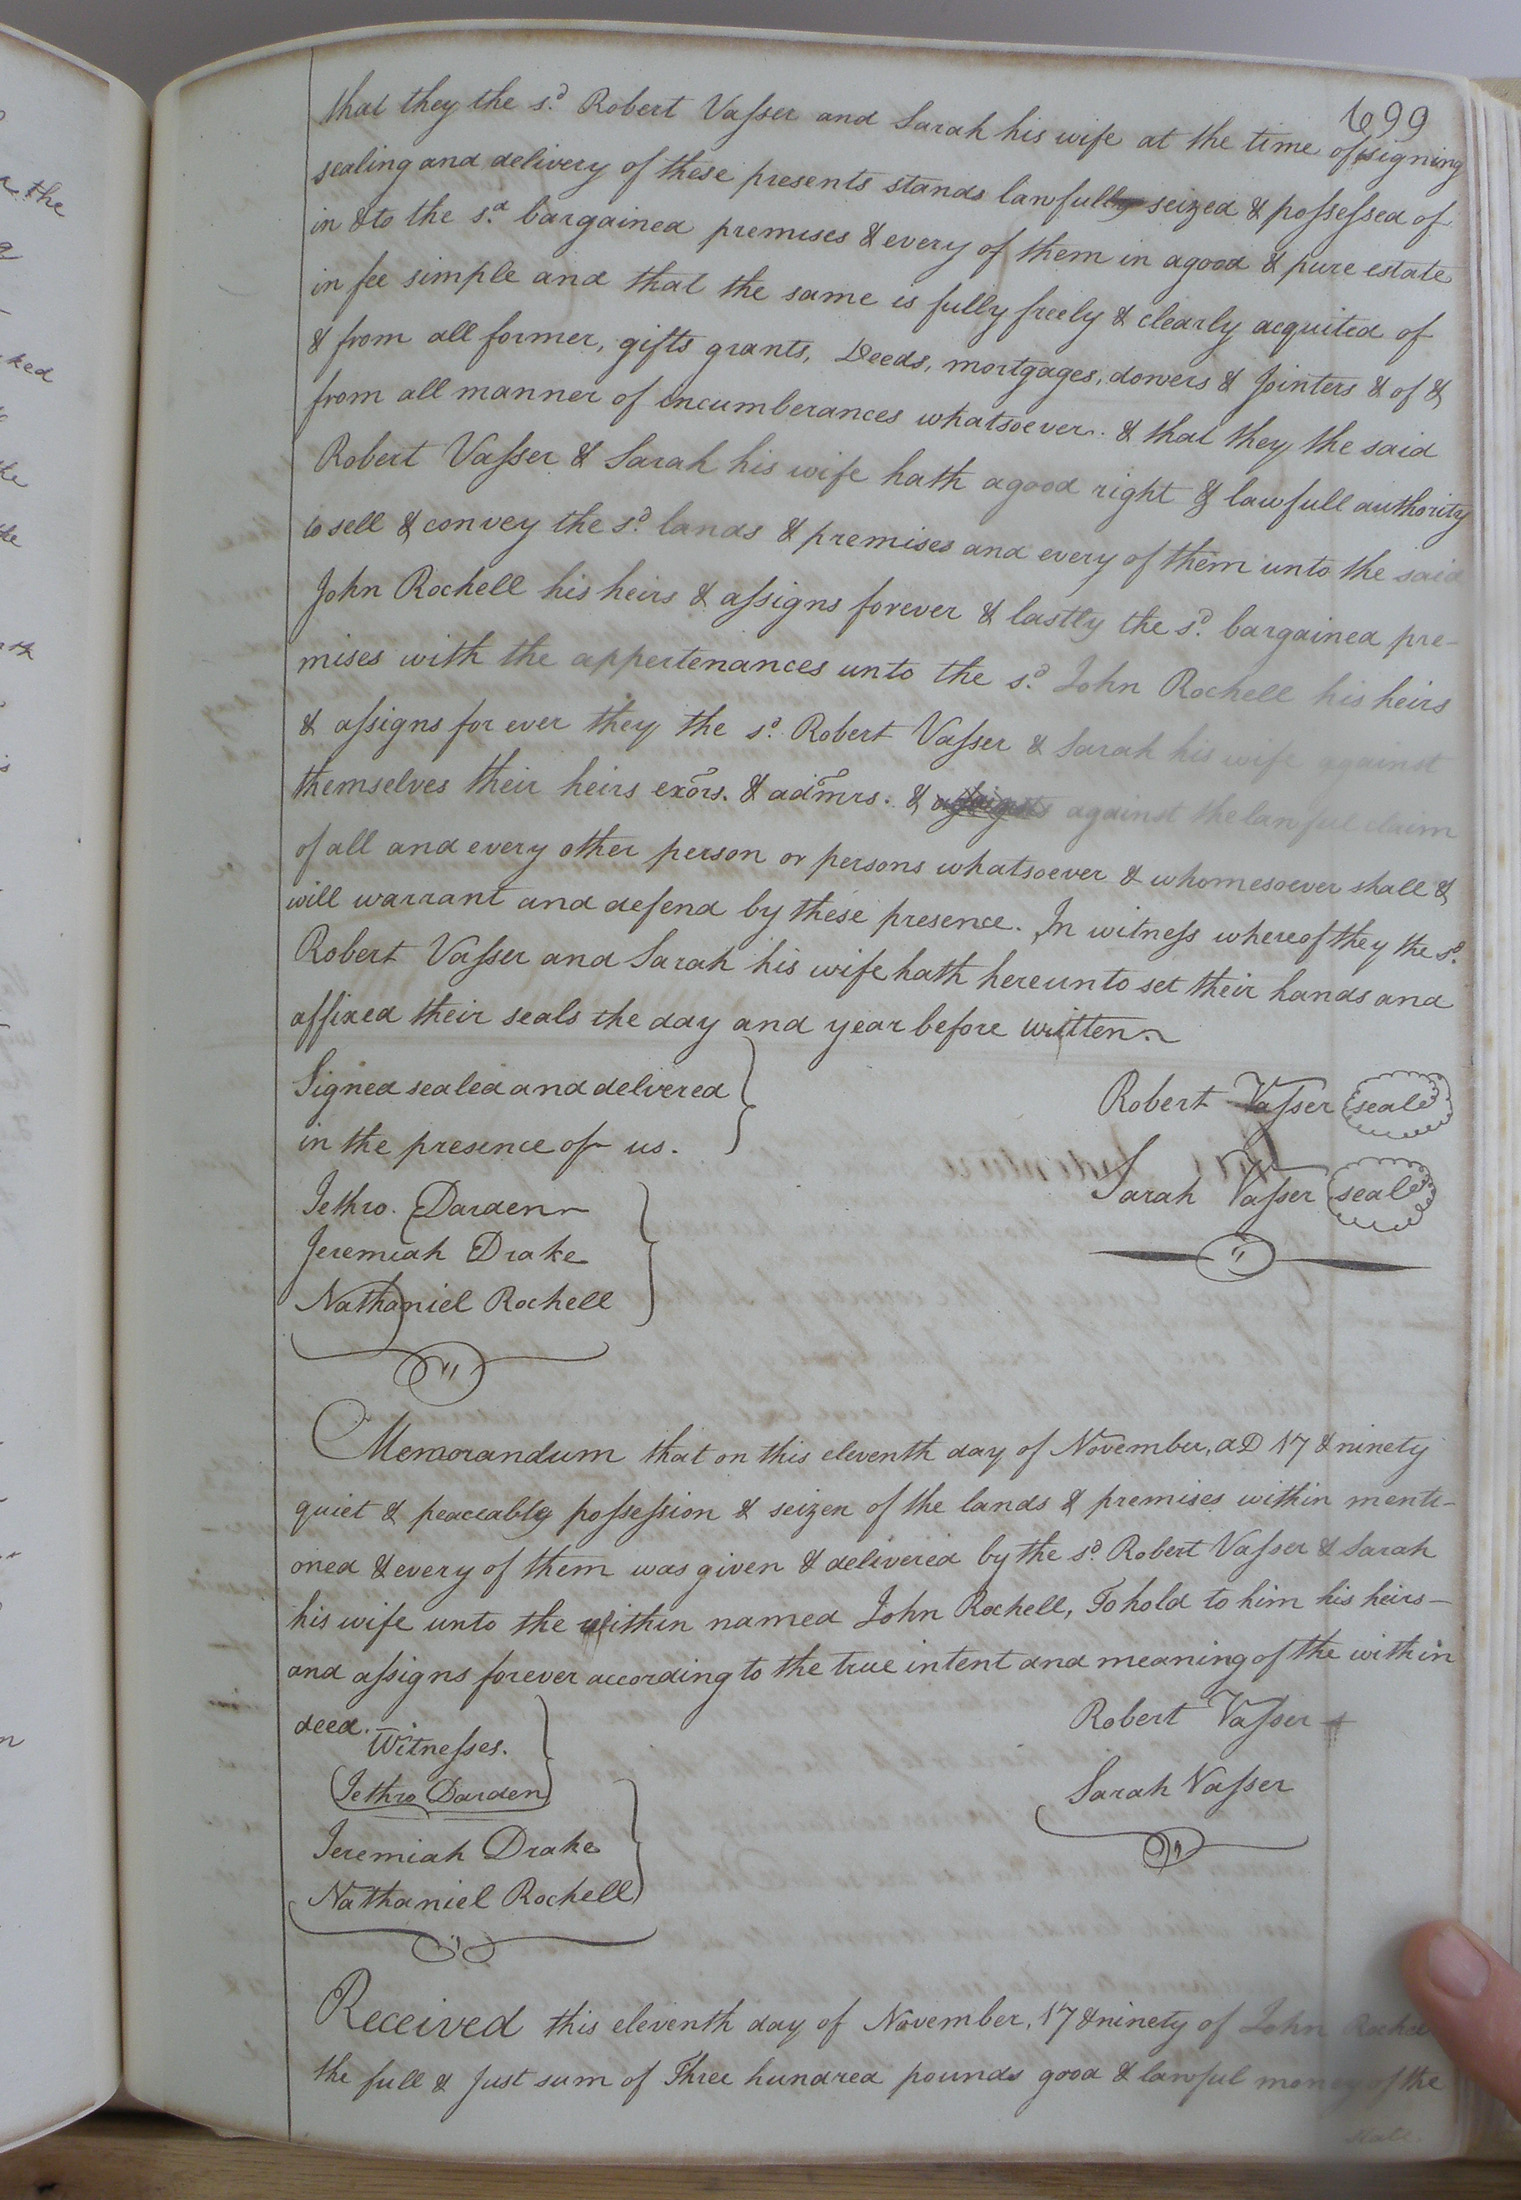 699
that they the s.d Robert Vaſser and Sarah his wife at the time of signing
sealing and delivery of these presents stands lawfully seized & poſseſsed of
in & to the s.d bargained premises & every of them in a good & pure estate
in fee simple and that the same is fully freely & clearly acquited of
& from all former, gifts grants, Deeds, mortgages, dowers & Jointers & of &
from all manner of incumberances whatsoever. & that they the said
Robert Vaſser & Sarah his wife hath a good right & lawfull authority
to sell & convey the s.d lands & premises and every of them unto the said
John Rochell his heirs & aſsigns forever & lastly the s.d bargained pre-
mises with the appertenances unto the s.d John Rochell his heirs
& aſsigns for ever they the s.d Robert Vaſser & Sarah his wife against
themselves their heirs exors. & admrs. & against the lawful claim
of all and every other person or persons whatsoever & whomesoever shall &
will warrant and defend by these presence. In witneſs whereof they the s.d
Robert Vaſser and Sarah his wife hath hereunto set their hands and
affixed their seals the day and year before written
Signed sealed and delivered
in the presence of us.
Robert Vaſser seal
Sarah Vaſser seal
Jethro. Darden
Jeremiah Drake
Nathaniel Rochell
Memorandum that on this eleventh day of November, AD 17 & ninety
quiet & peaceably poſseſsion & seizen of the lands & premises within menti-
oned & every of them was given & delivered by the s.d Robert Vaſser & Sarah
his wife unto the within named John Rochell, To hold to him his heirs
and aſsigns forever according to the true intent and meaning of the within
deed.
Witneſses.
Jethro Darden
Jeremiah Drake
Nathaniel Rochell
Robert Vaſser
Sarah Vaſser
Received this eleventh day of November, 17 & ninety of John
the full & Just sum of Three hundred pounds good & lawful money of the
state.